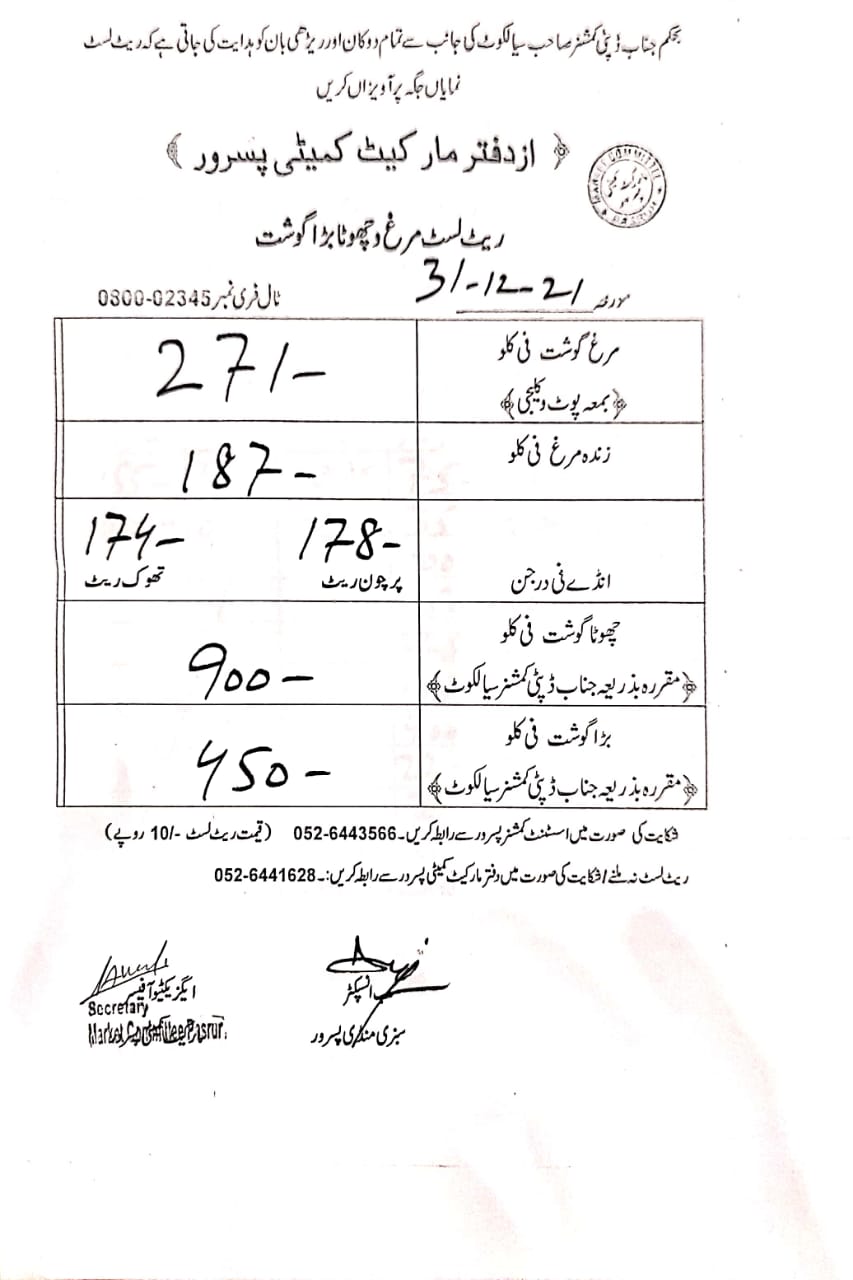 بحکم جناب ڈپٹی کمشنر صاحب سیالکوٹ کی جانب سے تمام دوکان اور ریڑھی بان کو ہدایت کی جاتی ہے کہ ریٹ لسٹ
نمایاں جگہ پر آویزاں کریں
﴿ از دفتر مارکیٹ کمیٹی پسرور ﴾
MARKET COMMITTEE PASRUR
ریٹ لسٹ مرغ و چھوٹا بڑا گوشت
مورخہ 31-12-21
ٹال فری نمبر 0800-02345
مرغ گوشت فی کلو
﴿بمعہ پوٹ و کلیجی﴾
271/-
زندہ مرغ فی کلو
187-
انڈے فی درجن
178-
پرچون ریٹ
174-
تھوک ریٹ
چھوٹا گوشت فی کلو
﴿مقررہ بذریعہ جناب ڈپٹی کمشنر سیالکوٹ﴾
900-
بڑا گوشت فی کلو
﴿مقررہ بذریعہ جناب ڈپٹی کمشنر سیالکوٹ﴾
450-
شکایت کی صورت میں اسسٹنٹ کمشنر پسرور سے رابطہ کریں۔ 052-6443566 (قیمت ریٹ لسٹ -/10 روپے)
ریٹ لسٹ نہ ملنے / شکایت کی صورت میں دفتر مارکیٹ کمیٹی پسرور سے رابطہ کریں:۔ 052-6441628
انسپکٹر
سبزی منڈی پسرور
ایگزیکٹو آفیسر
Secretary
Market Committee Pasrur.